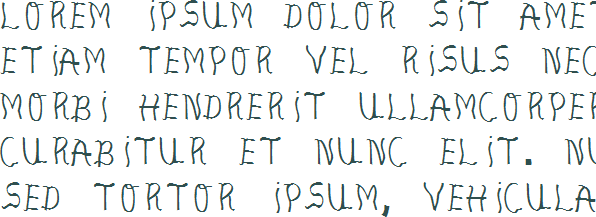 LOREM iPSUM DOLOR SiT AMET
ETiAM TEMPOR VEL RiSUS NEC
MORBi HENDRERiT ULLAMCORPER
CURABiTUR ET NUNC ELiT. NU
SED TORTOR iPSUM, VEHiCULA